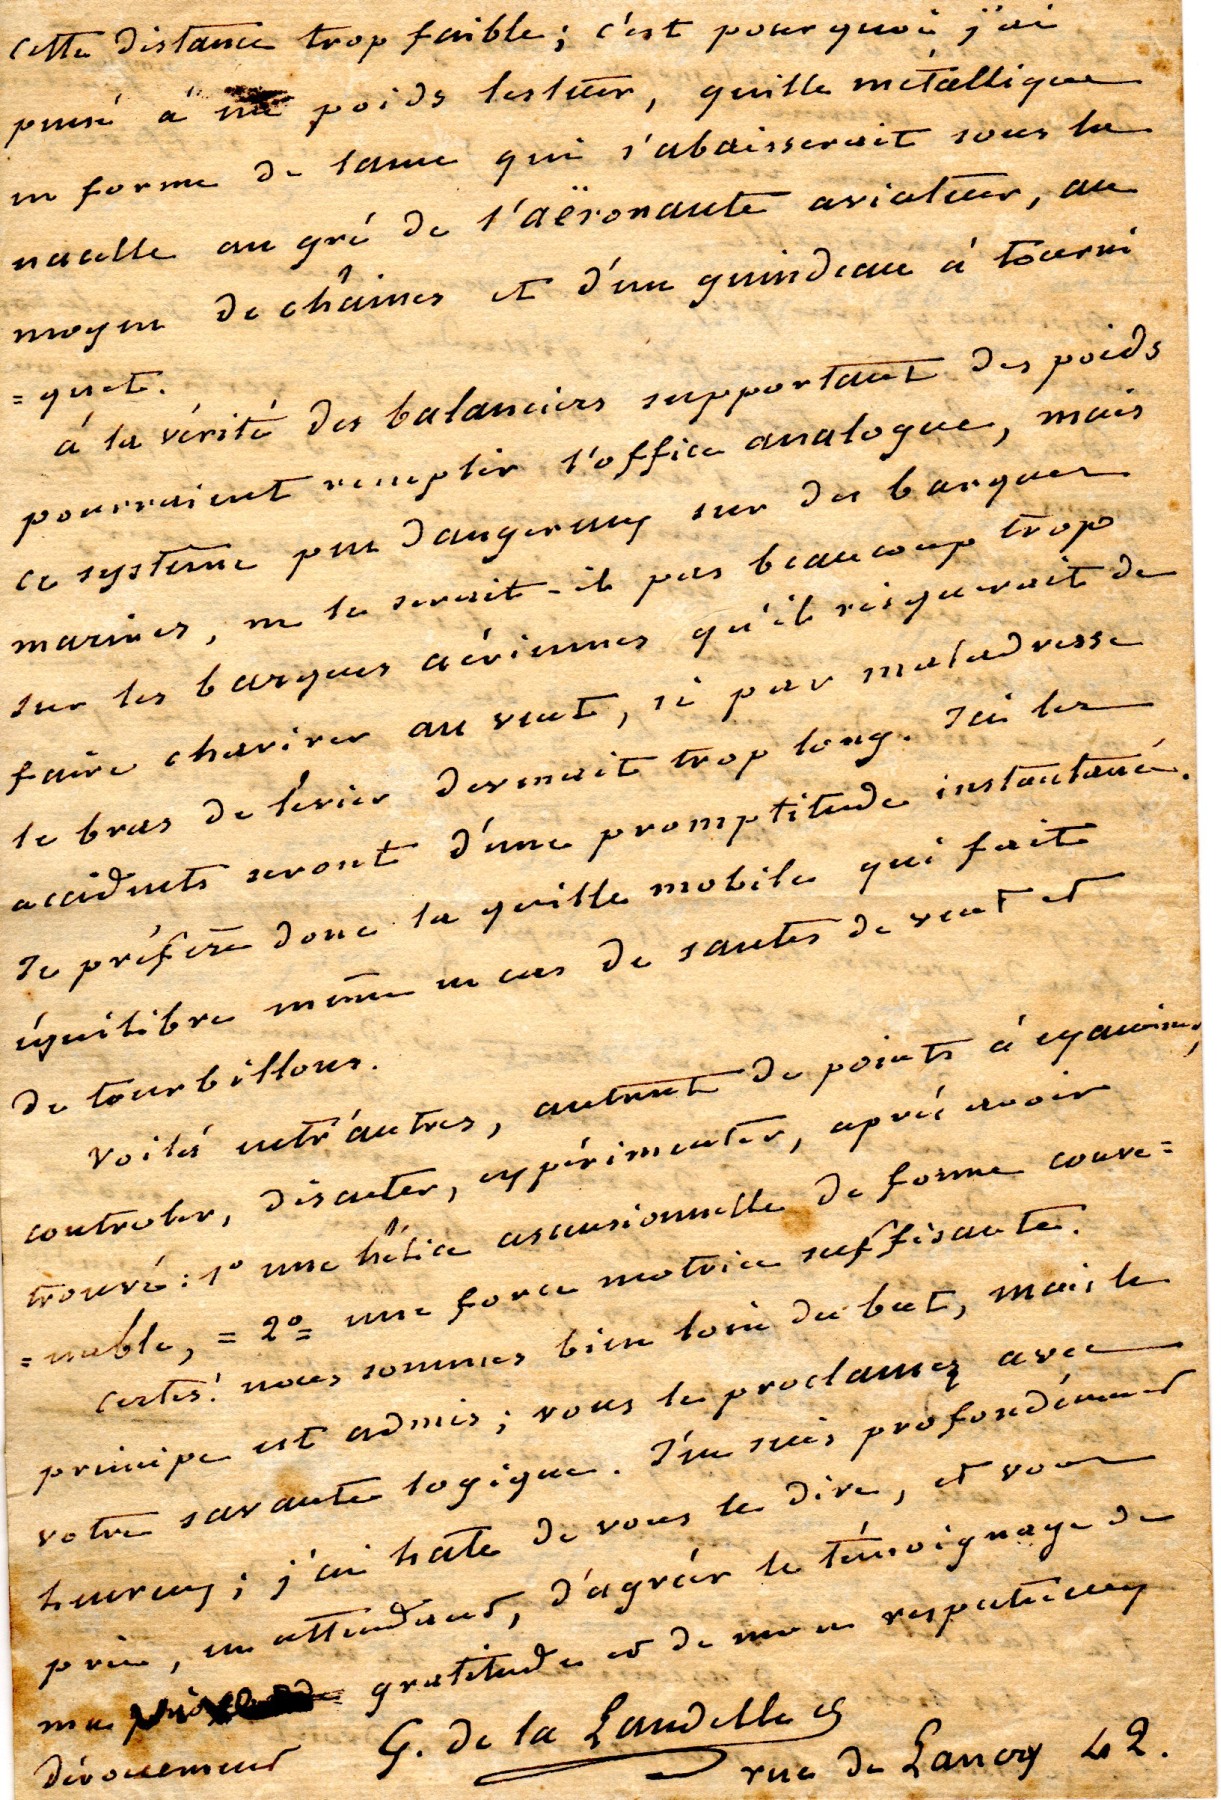 cette distance trop faible; c'est pourquoi j'ai
pensé à un poids lesteur, quille métallique
en forme de lame qui s'abaisserait sous la
nacelle au gré de l'aëronaute aviateur, au
moyen de chaînes et d'un guindeau à tourni
=quet.
à la vérité des balanciers supportant des poids
pourraient remplir l'office analogue, mais
ce système peu dangereux sur des barques
marines, ne le serait-il pas beaucoup trop
sur les barques aériennes qu'il risquerait de
faire chavirer au vent, si par maladresse
le bras de lévier devenait trop long. Ici les
accidents seront d'une promptitude instantané.
Je préfère donc la quille mobile qui fait
équilibre même en cas de sautes de vent et
de tourbillons.
Voilà entr'autres, autant de points à examiner,
controler, discuter, expérimenter, après avoir
trouvé: 1º une hélice ascensionnelle de forme conve=
=nable, = 2º= une force motrice suffisante.
Certes! nous sommes bien loin du but, mais le
principe est admis; vous le proclamez avec
votre savante logique. J'en suis profondément
heureux; j'ai hate de vous le dire, et vous
prie, en attendant, d'agréér le témoignage de
ma gratitude et de mon respectueux
dévouement G. de la Landelle
rue de Lancry 42.